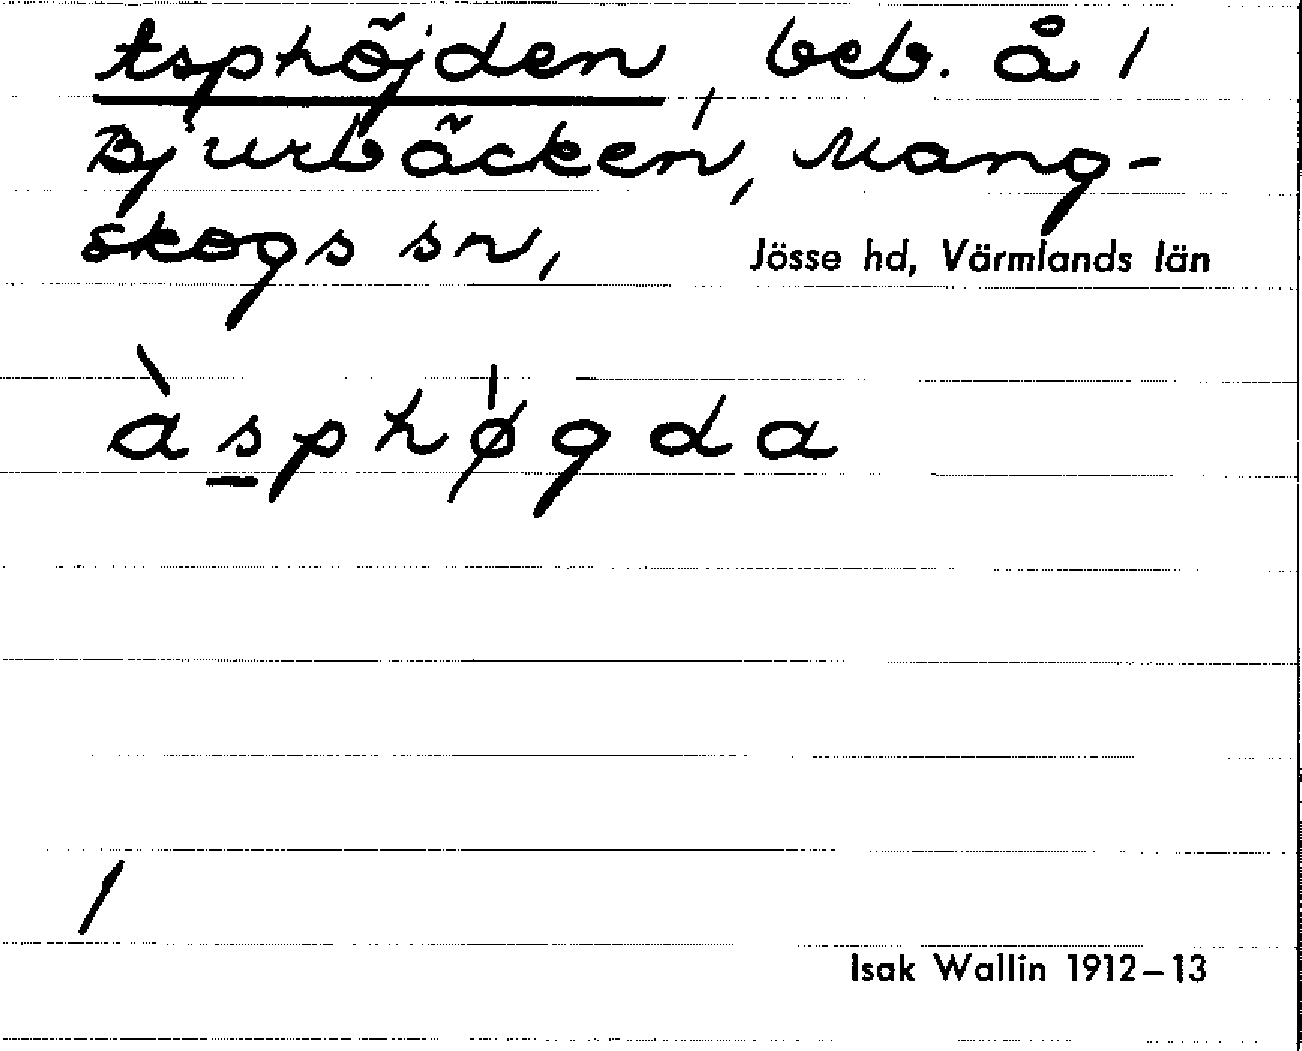 Asphöjden, beb. å 1
Bjurbäcken, Mang-
skogs sn, Jösse hd, Värmlands län
àsphø̍gda
/
Isak Wallin 1912–13